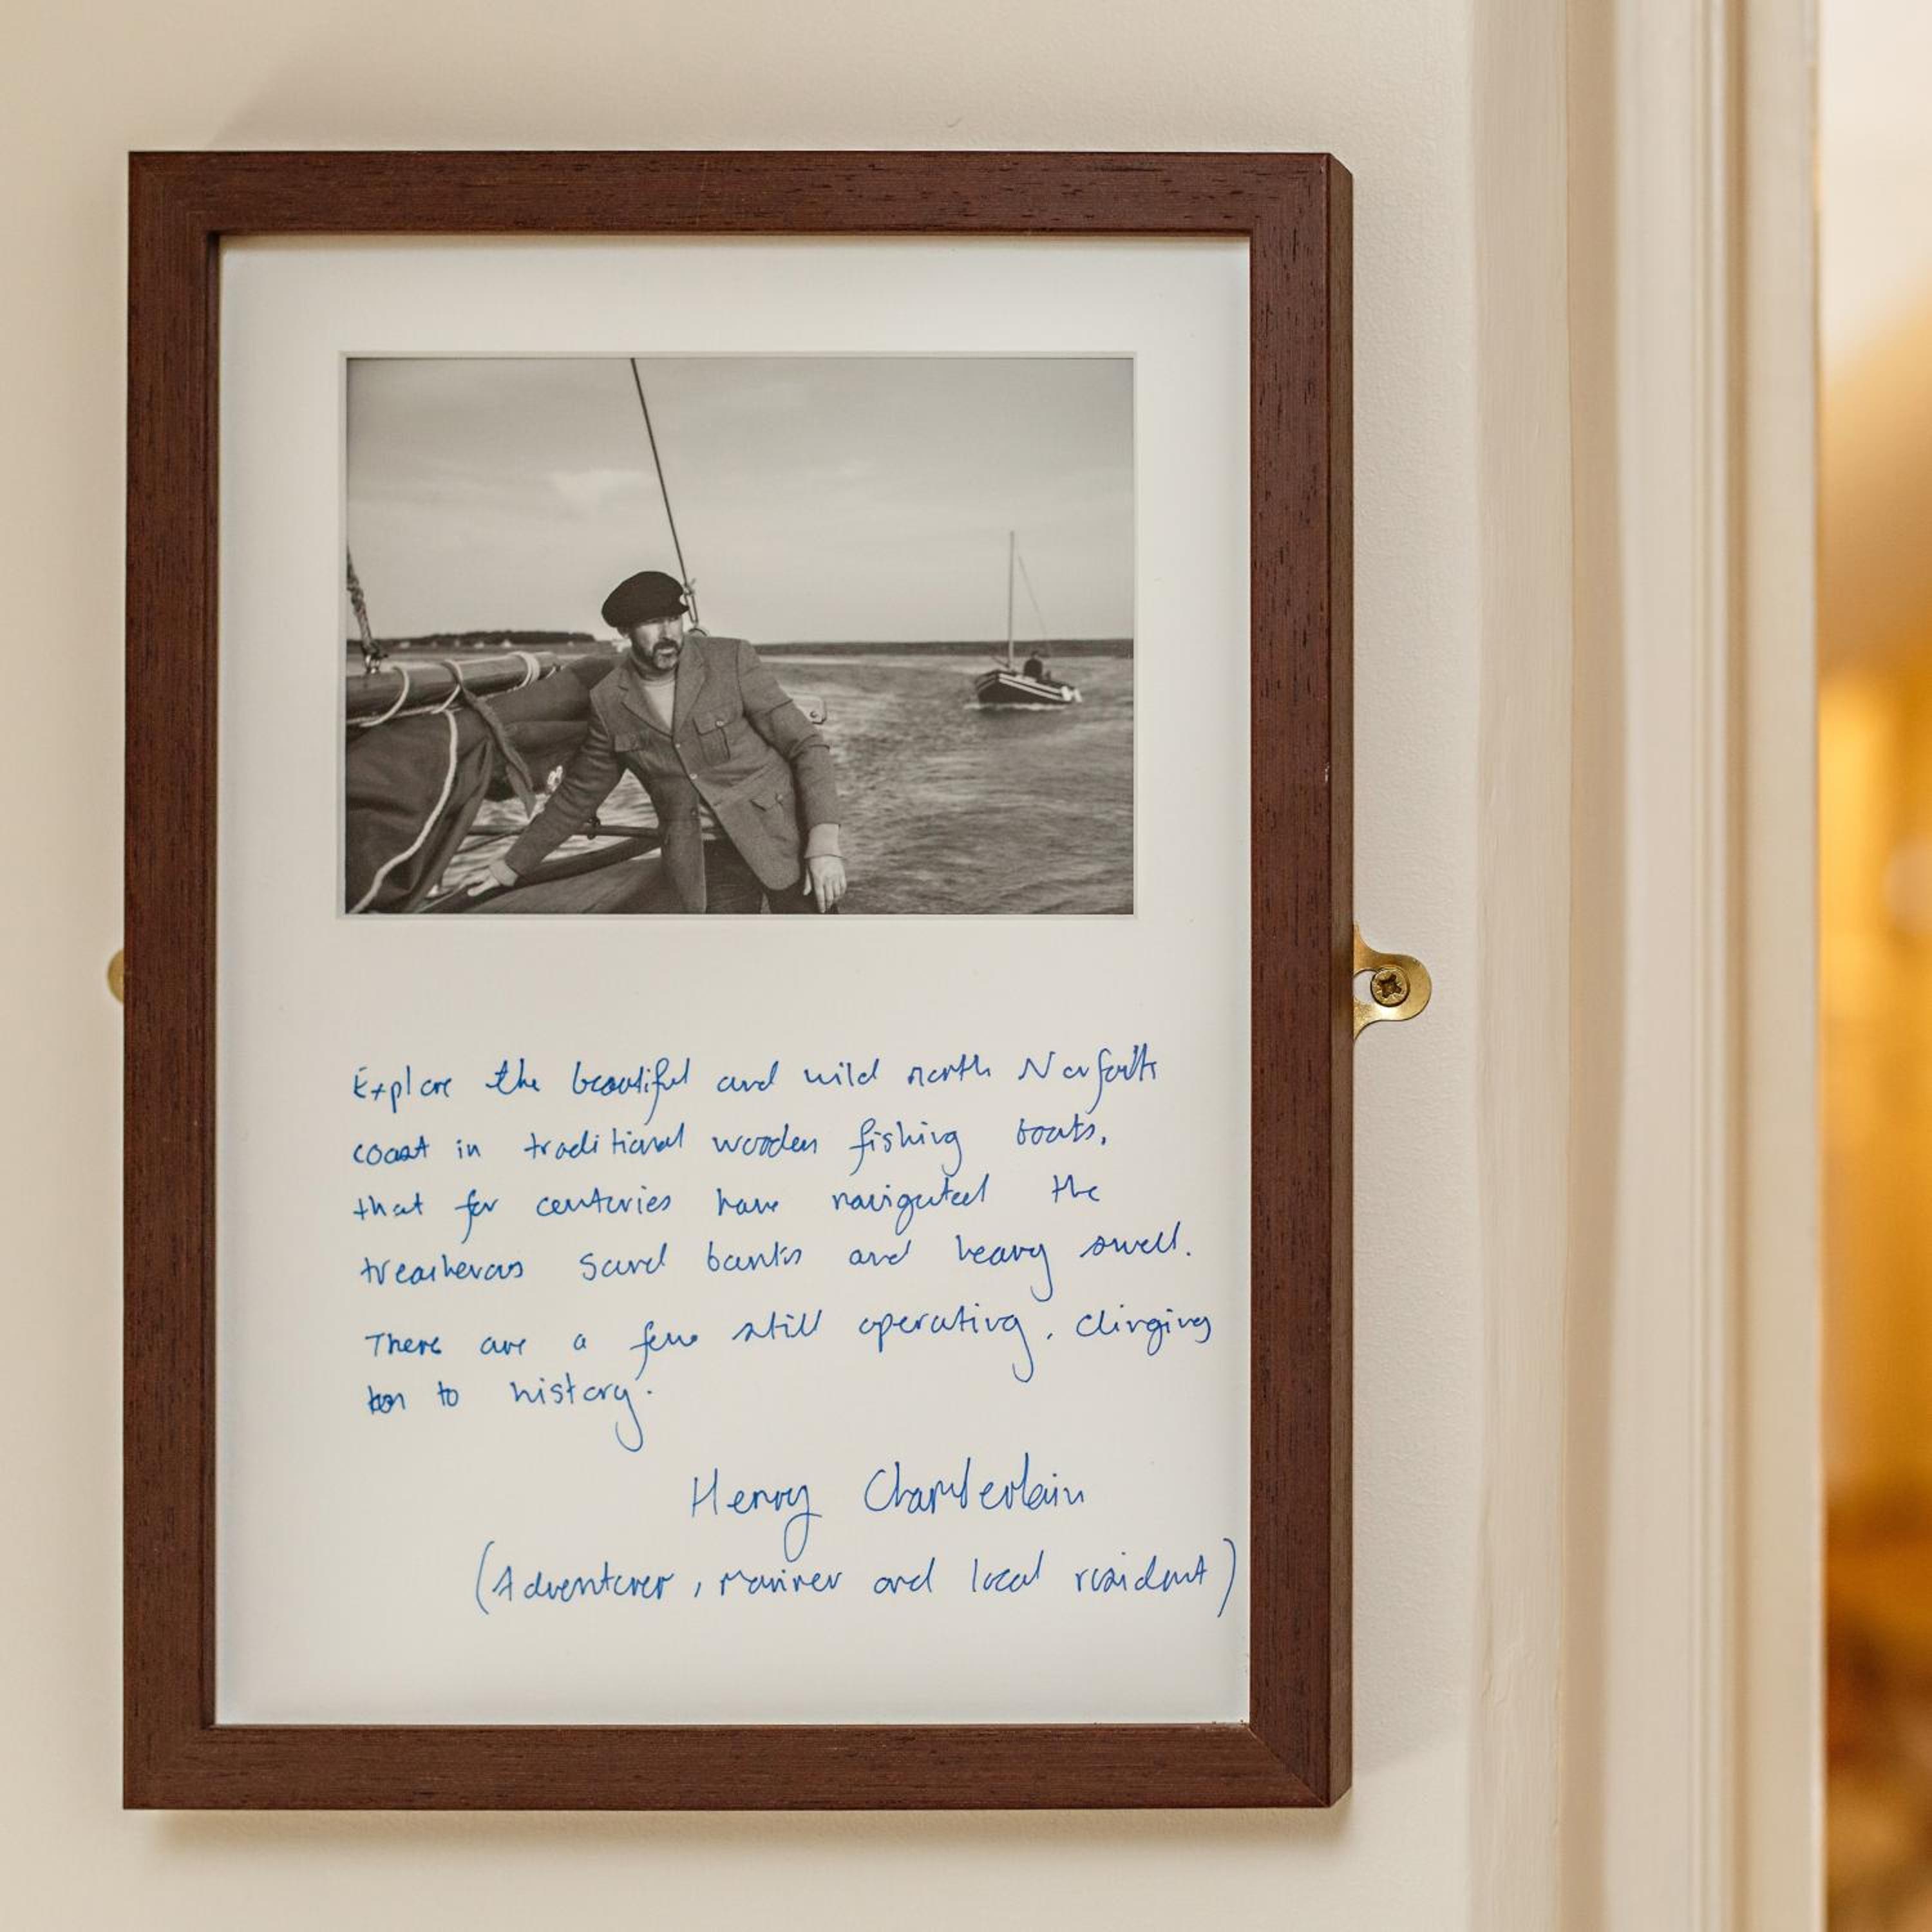 Explore the beautiful and wild north Norfolk
coast in traditional wooden fishing boats,
that for centuries have navigated the
treacherous sand banks and heavy swell.
There are a few still operating, clinging
on to history.
Henry Chamberlain
(Adventurer, mariner and local resident)